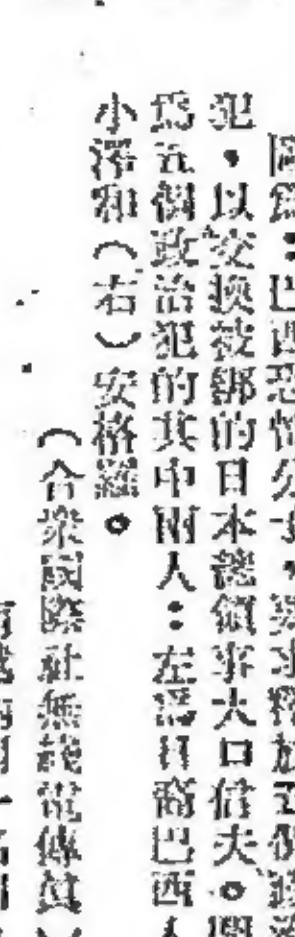 圖爲：巴西恐怖分子，要求釋放五個政治
犯，以交換被綁的日本總領事大口信夫。圖
爲五個政治犯的其中兩人：左爲日裔巴西人
小澤和（右）安格羅。
（合衆國際社無綫電傳真）